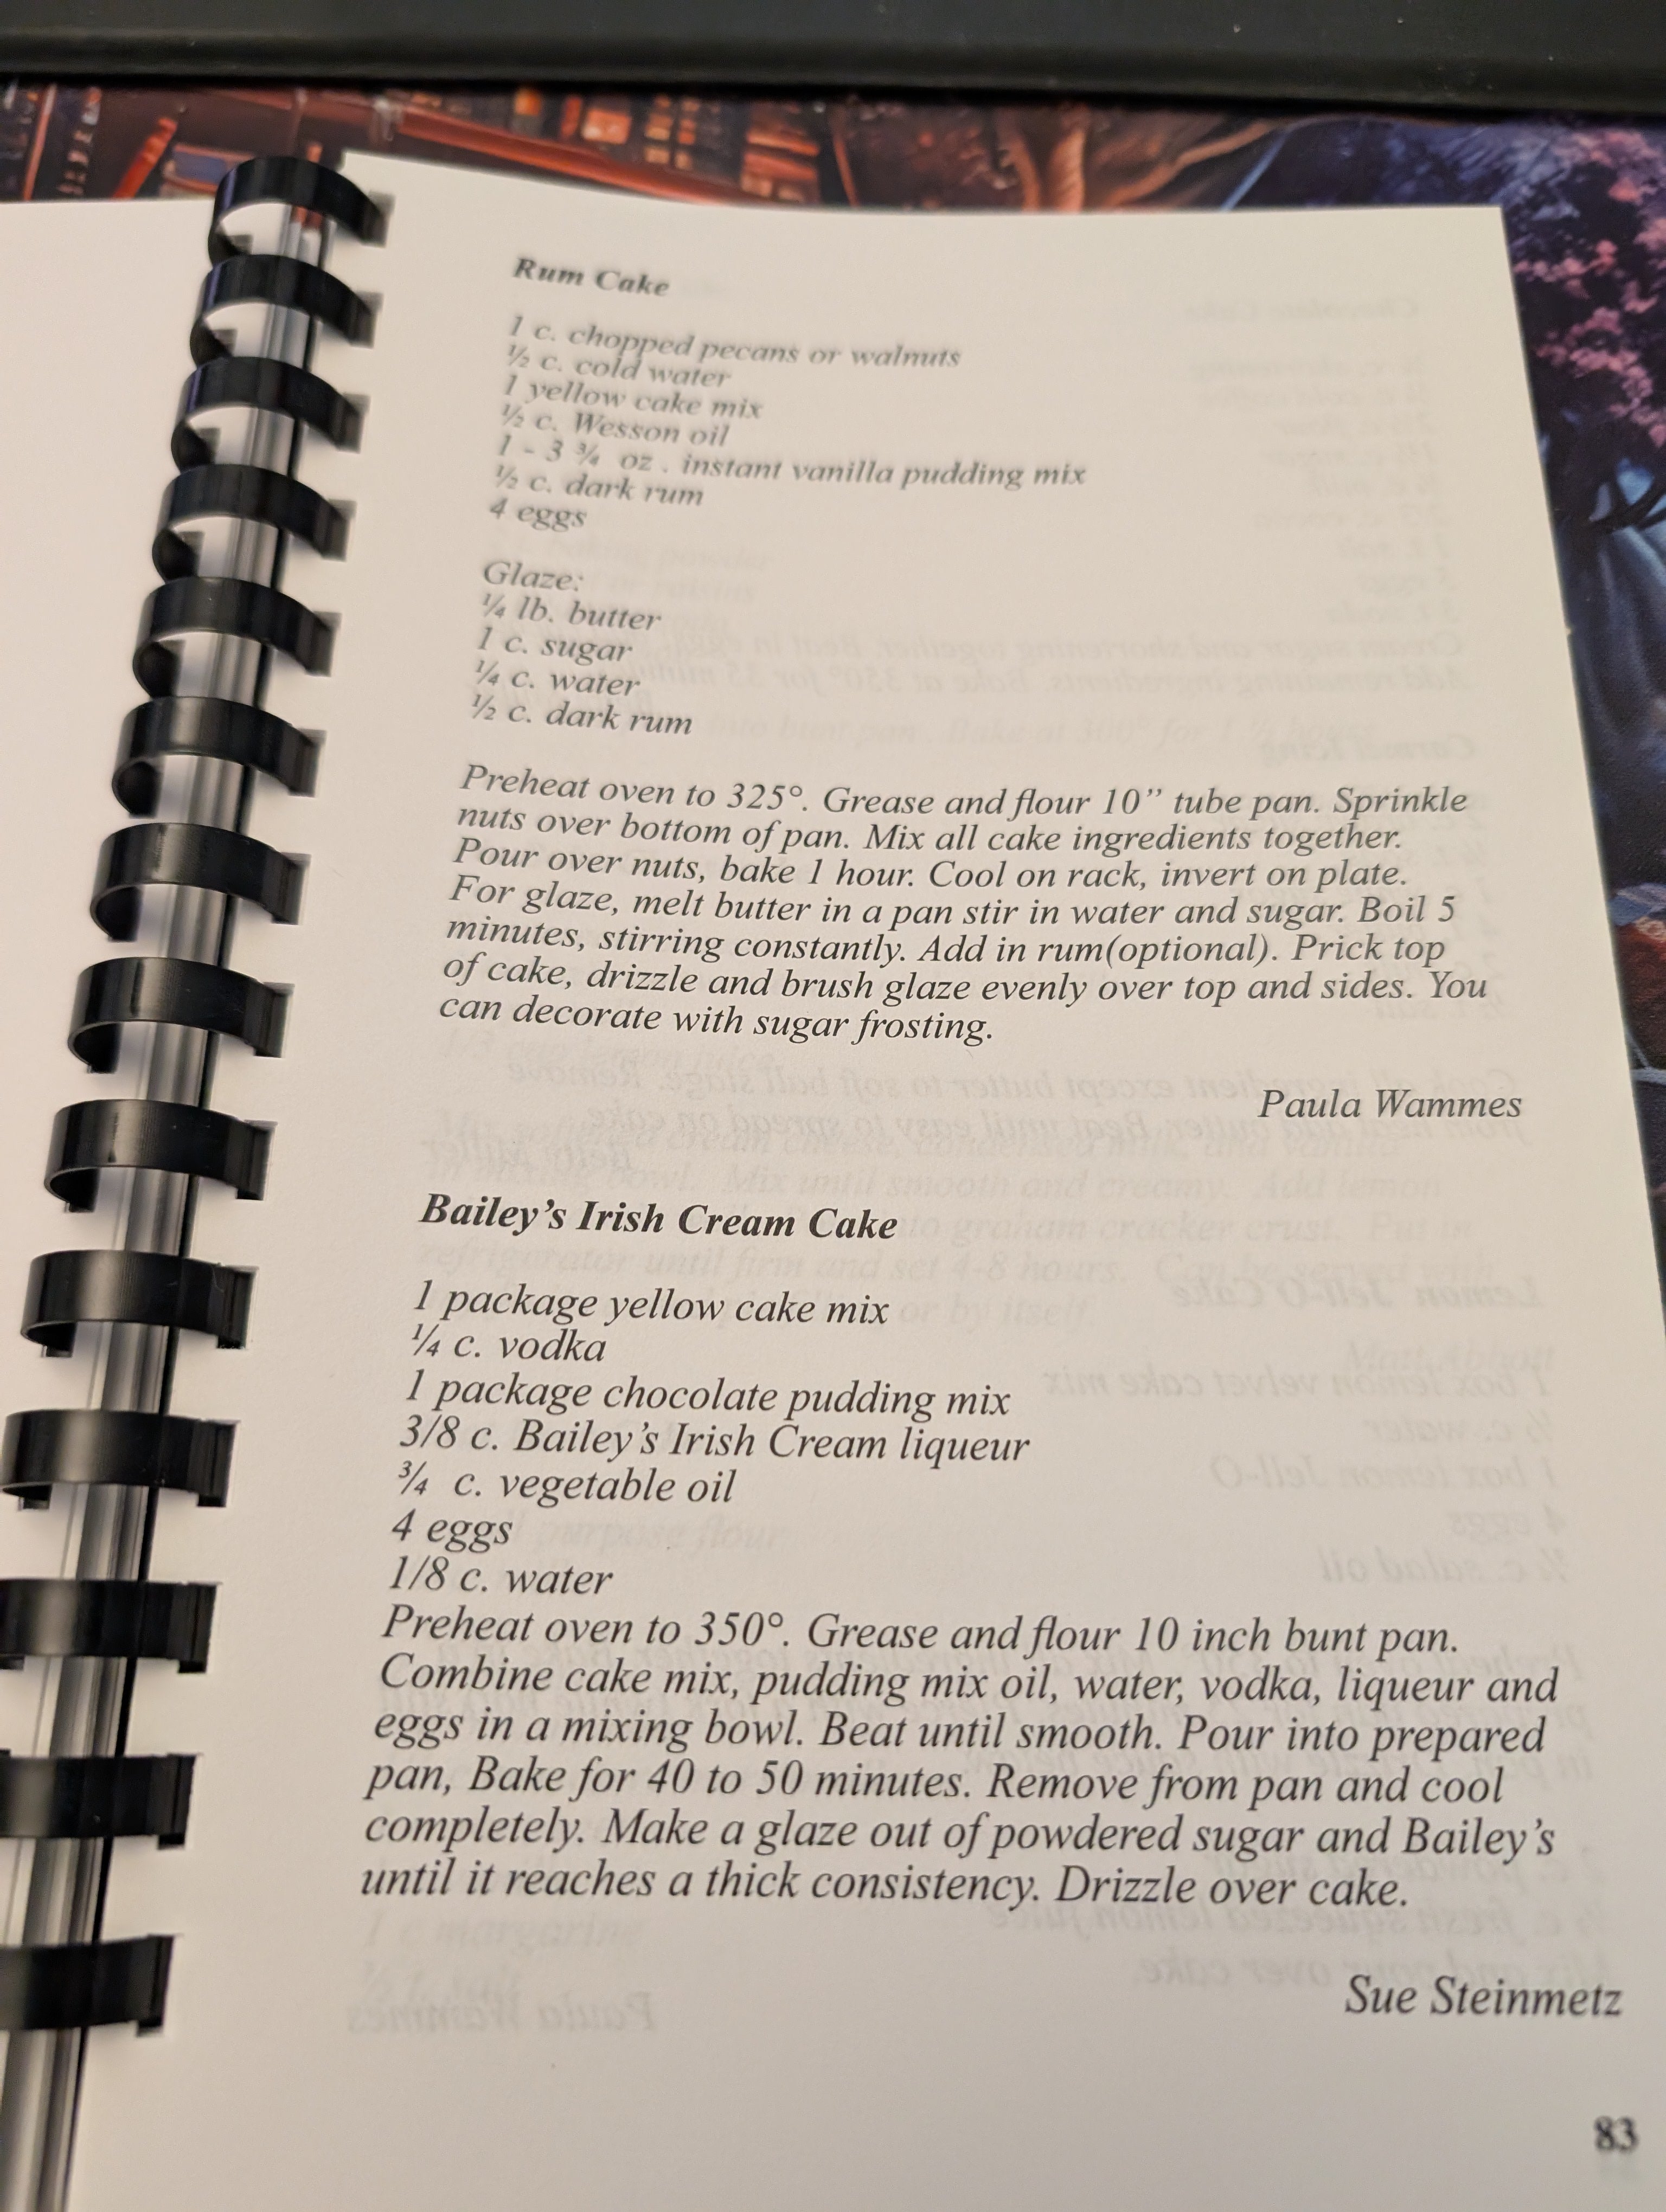 Rum Cake
1 c. chopped pecans or walnuts
½ c. cold water
1 yellow cake mix
½ c. Wesson oil
1 - 3 ¾ oz . instant vanilla pudding mix
½ c. dark rum
4 eggs
Glaze:
¼ lb. butter
1 c. sugar
¼ c. water
½ c. dark rum
Preheat oven to 325°. Grease and flour 10” tube pan. Sprinkle
nuts over bottom of pan. Mix all cake ingredients together.
Pour over nuts, bake 1 hour. Cool on rack, invert on plate.
For glaze, melt butter in a pan stir in water and sugar. Boil 5
minutes, stirring constantly. Add in rum(optional). Prick top
of cake, drizzle and brush glaze evenly over top and sides. You
can decorate with sugar frosting.
Paula Wammes
Bailey’s Irish Cream Cake
1 package yellow cake mix
¼ c. vodka
1 package chocolate pudding mix
3/8 c. Bailey’s Irish Cream liqueur
¾ c. vegetable oil
4 eggs
1/8 c. water
Preheat oven to 350°. Grease and flour 10 inch bunt pan.
Combine cake mix, pudding mix oil, water, vodka, liqueur and
eggs in a mixing bowl. Beat until smooth. Pour into prepared
pan, Bake for 40 to 50 minutes. Remove from pan and cool
completely. Make a glaze out of powdered sugar and Bailey’s
until it reaches a thick consistency. Drizzle over cake.
Sue Steinmetz
83